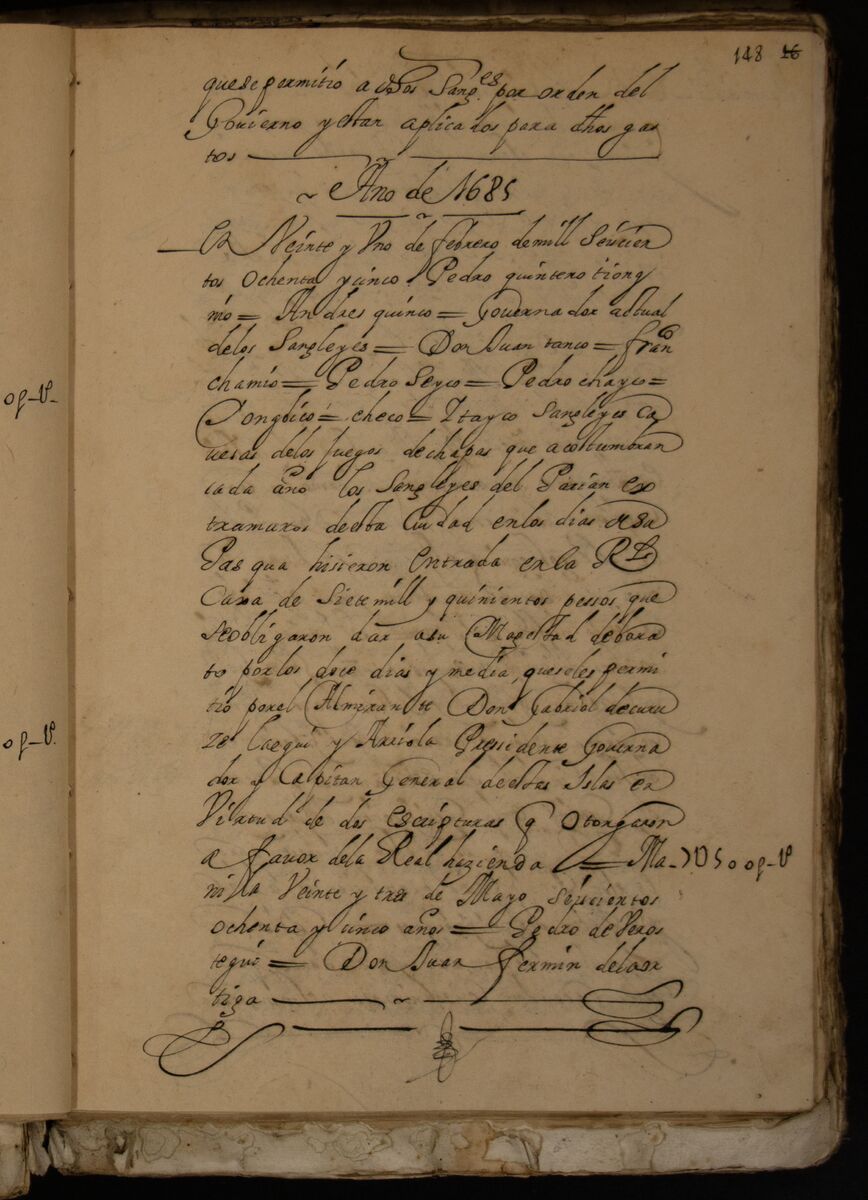 148 16
que se permitio a dhos Sangs.es por orden del
Govierno y estan aplicados para dhos gas
tos
~ Año de 1685
En Veinte y Uno de febrero de mill Seiscien
tos ochenta y cinco Pedro quintero tiong
nio = Andres quinco = Governador actual
delos Sangleyes = Don Juan tanco = fran.co
chamio = Pedro Seyco = Pedro chayco =
checo = Ytayco Sangleyes Ca
uesas delos Juegos de chapas que acostumbran
cada año los Sangleyes del Parian ex
tramuros desta Ciudad en los dias de su
Pasqua hisieron entrada en la Rl.
Caxa de Siete mill y quinientos pessos que
se obligaron dar a su Magestad de bara
to por los doce dias y media que seles permi
tio por el Almirante Don Gabriel de curu
ze laegui y Arriola Pressidente Governa
dor y Capitan General de estas Islas en
Virtud de dos escripturas q otorgaron
a favor dela Real hazienda = Ma-
nilla Veinte y tres de Mayo seiscientos
ochenta y cinco años = Pedro de Veros
tegui = Don Juan fermin delaor
tiga